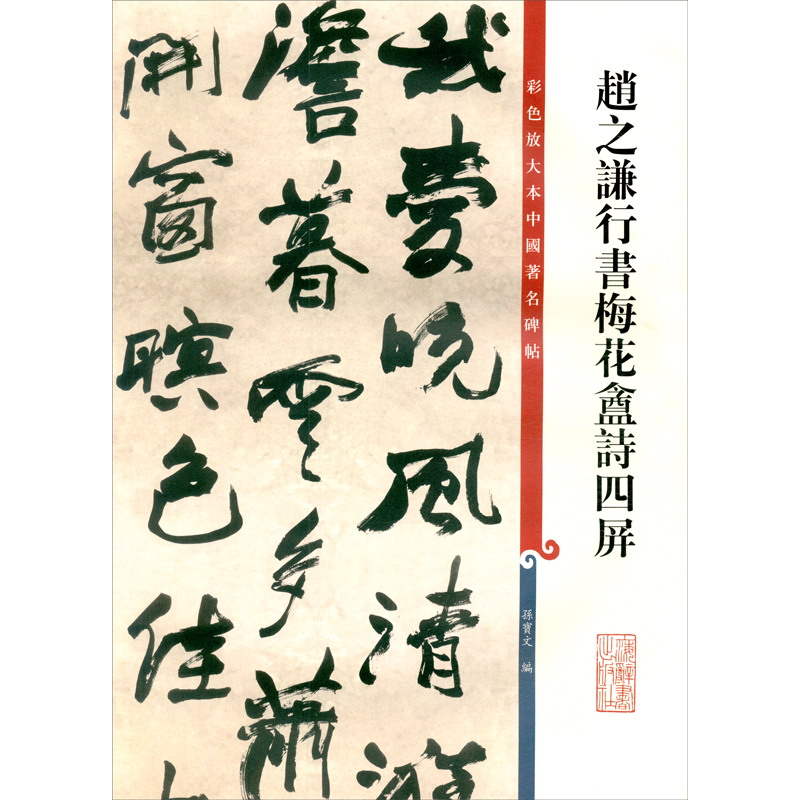 趙之謙行書梅花盦詩四屏
彩色放大本中國著名碑帖
孫寶文 編
上海辭書
出版社
我愛晚風清
澹暮雲多蕭
開窗暝色佳